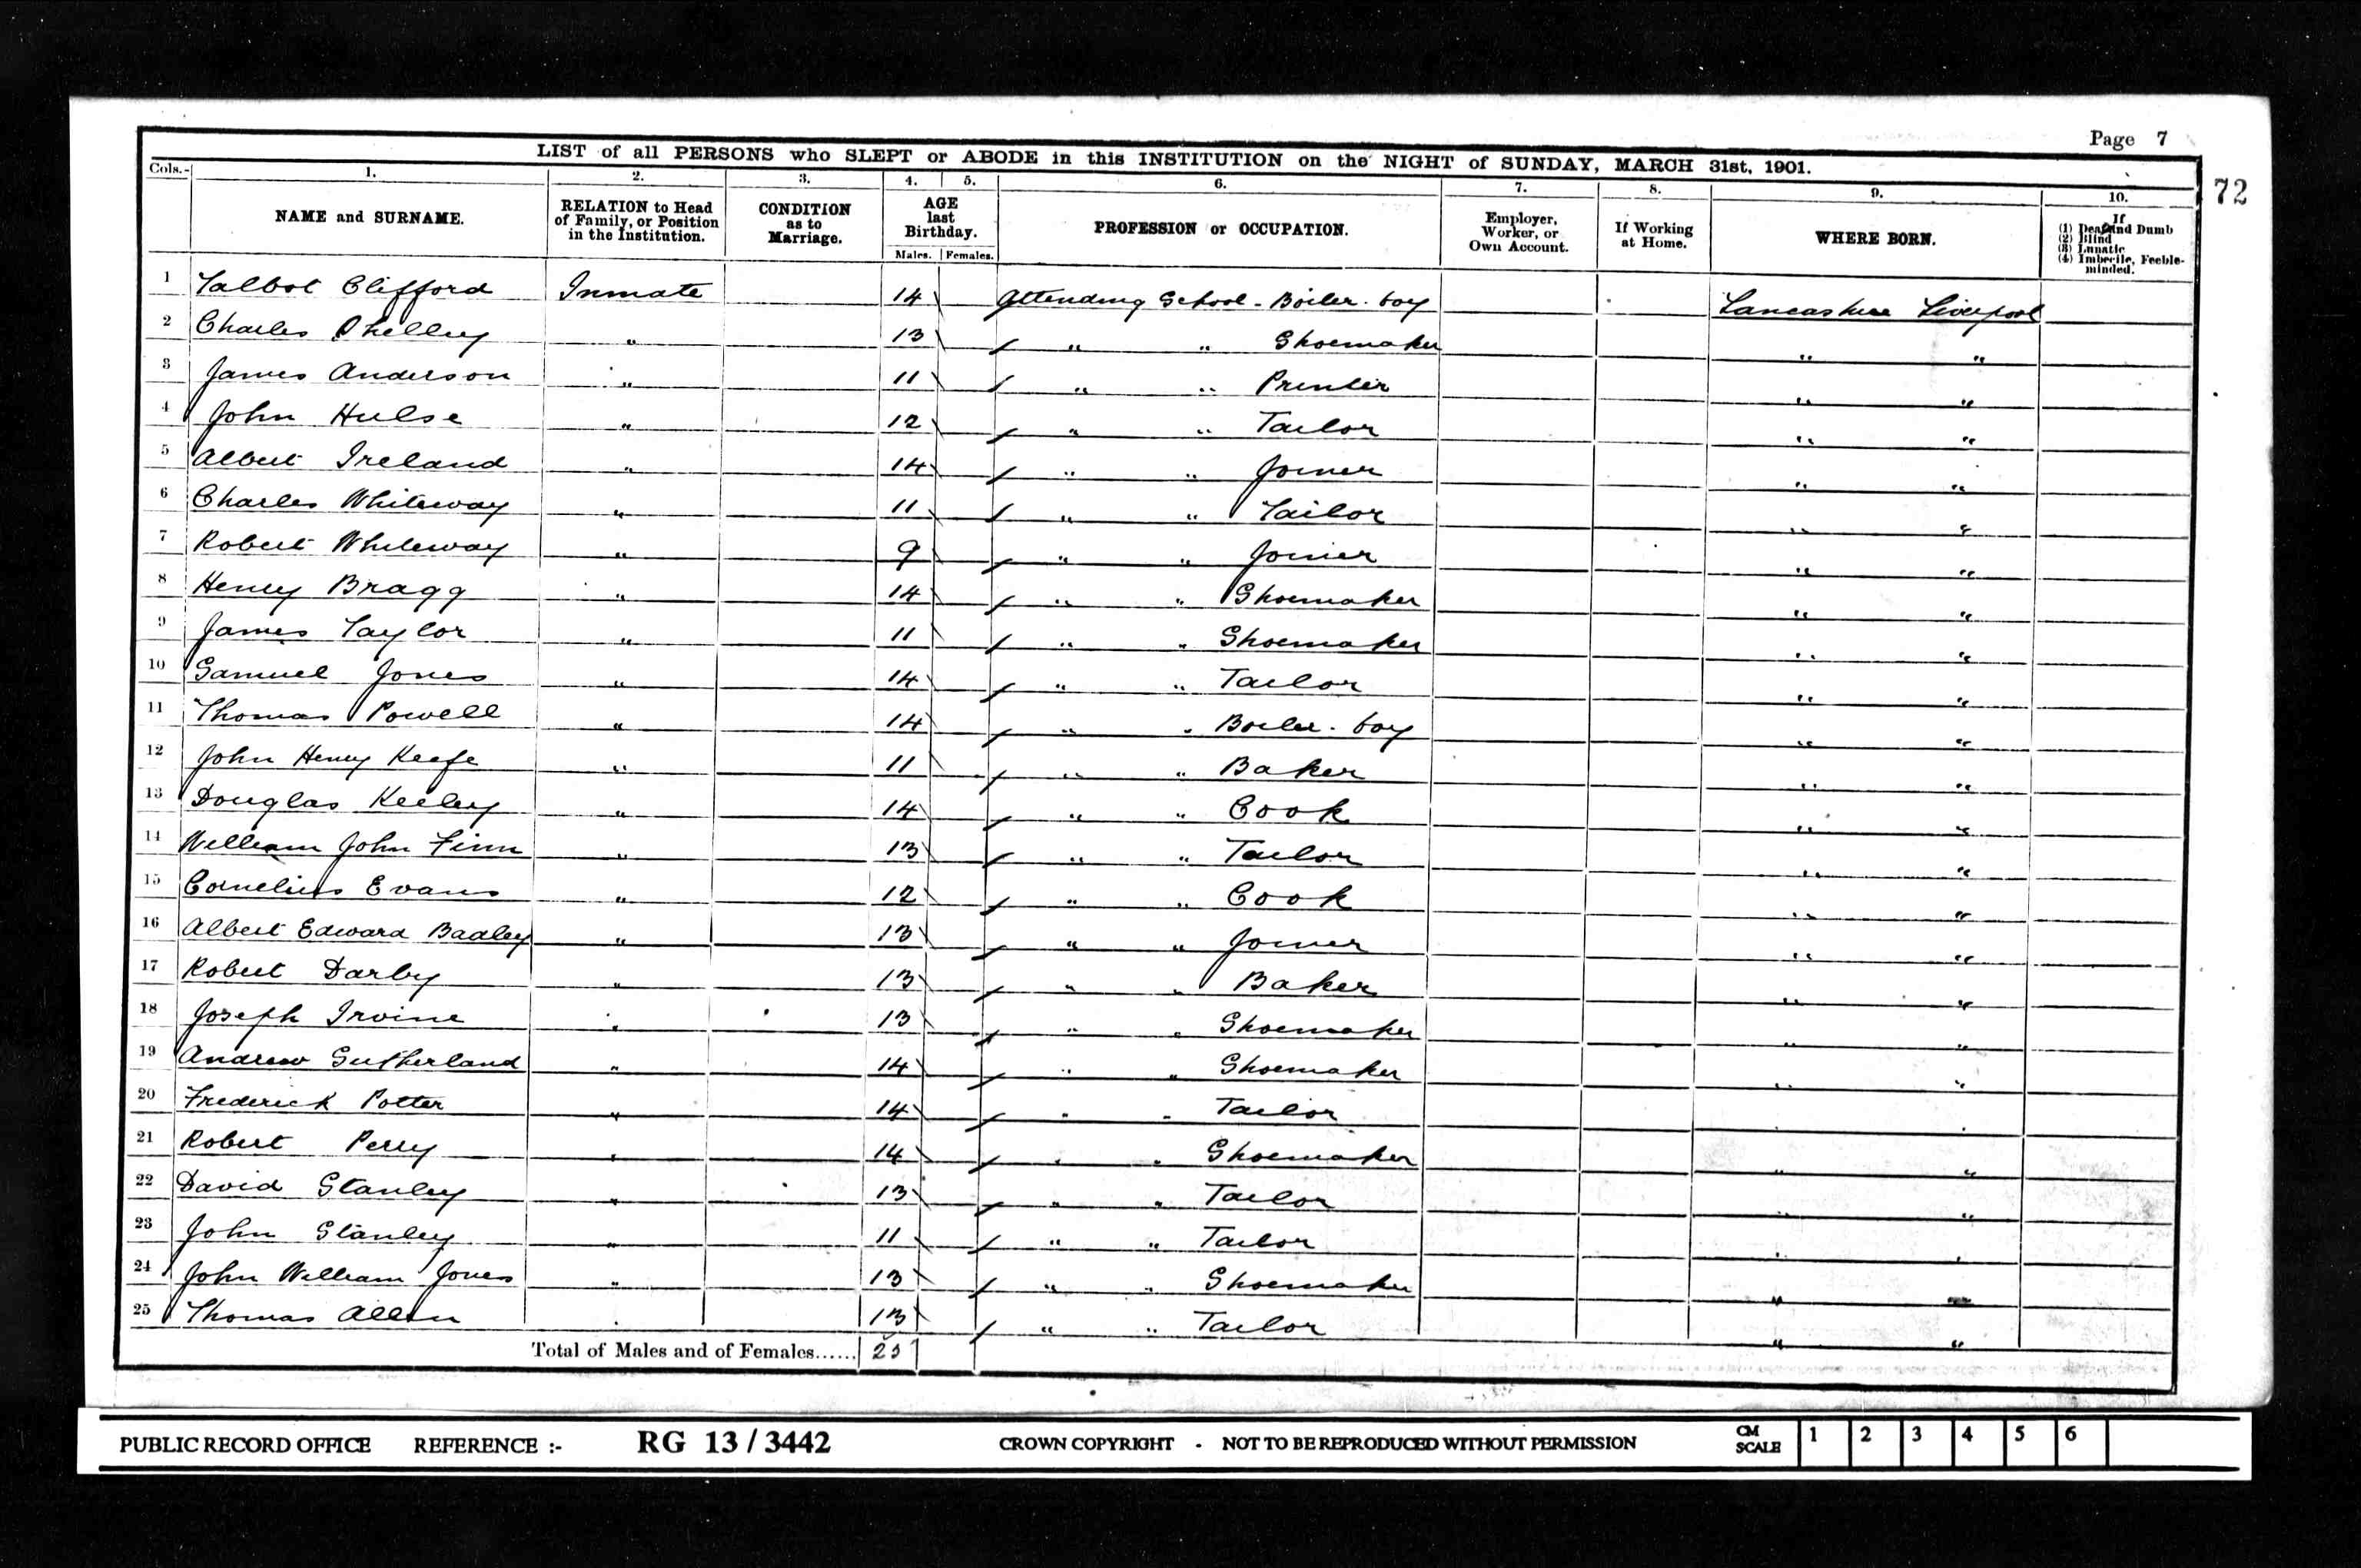 Page 7
LIST of all PERSONS who SLEPT or ABODE in this INSTITUTION on the NIGHT of SUNDAY, MARCH 31st, 1901.
72
Cols. 1. 2. 3. 4. 5. 6. 7. 8. 9. 10.
NAME and SURNAME. RELATION to Head of Family, or Position in the Institution. CONDITION as to Marriage. AGE last Birthday. Males. Females. PROFESSION or OCCUPATION. Employer, Worker, or Own Account. If Working at Home. WHERE BORN. If (1) Deaf and Dumb (2) Blind (3) Lunatic (4) Imbecile, Feeble-minded.
1 Talbot Clifford Inmate 14 Attending School - Boiler. boy Lancashire Liverpool
2 Charles Shelley " 13 " " Shoemaker " "
3 James Anderson " 11 " " Printer " "
4 John Hulse " 12 " " Tailor " "
5 Albert Ireland " 14 " " Joiner " "
6 Charles Whiteway " 11 " " Tailor " "
7 Robert Whiteway " 9 " " Joiner " "
8 Henry Bragg " 14 " " Shoemaker " "
9 James Taylor " 11 " " Shoemaker " "
10 Samuel Jones " 14 " " Tailor " "
11 Thomas Powell " 14 " " Boiler. boy " "
12 John Henry Keefe " 11 " " Baker " "
13 Douglas Keeley " 14 " " Cook " "
14 William John Finn " 13 " " Tailor " "
15 Cornelius Evans " 12 " " Cook " "
16 Albert Edward Badley " 13 " " Joiner " "
17 Robert Darby " 13 " " Baker " "
18 Joseph Irvine " 13 " " Shoemaker " "
19 Andrew Sutherland " 14 " " Shoemaker " "
20 Frederick Potter " 14 " " Tailor " "
21 Robert Perry " 14 " " Shoemaker " "
22 David Stanley " 13 " " Tailor " "
23 John Stanley " 11 " " Tailor " "
24 John William Jones " 13 " " Shoemaker " "
25 Thomas Allen " 13 " " Tailor " "
Total of Males and of Females...... 25
PUBLIC RECORD OFFICE REFERENCE :- RG 13 / 3442 CROWN COPYRIGHT - NOT TO BE REPRODUCED WITHOUT PERMISSION CM SCALE 1 2 3 4 5 6